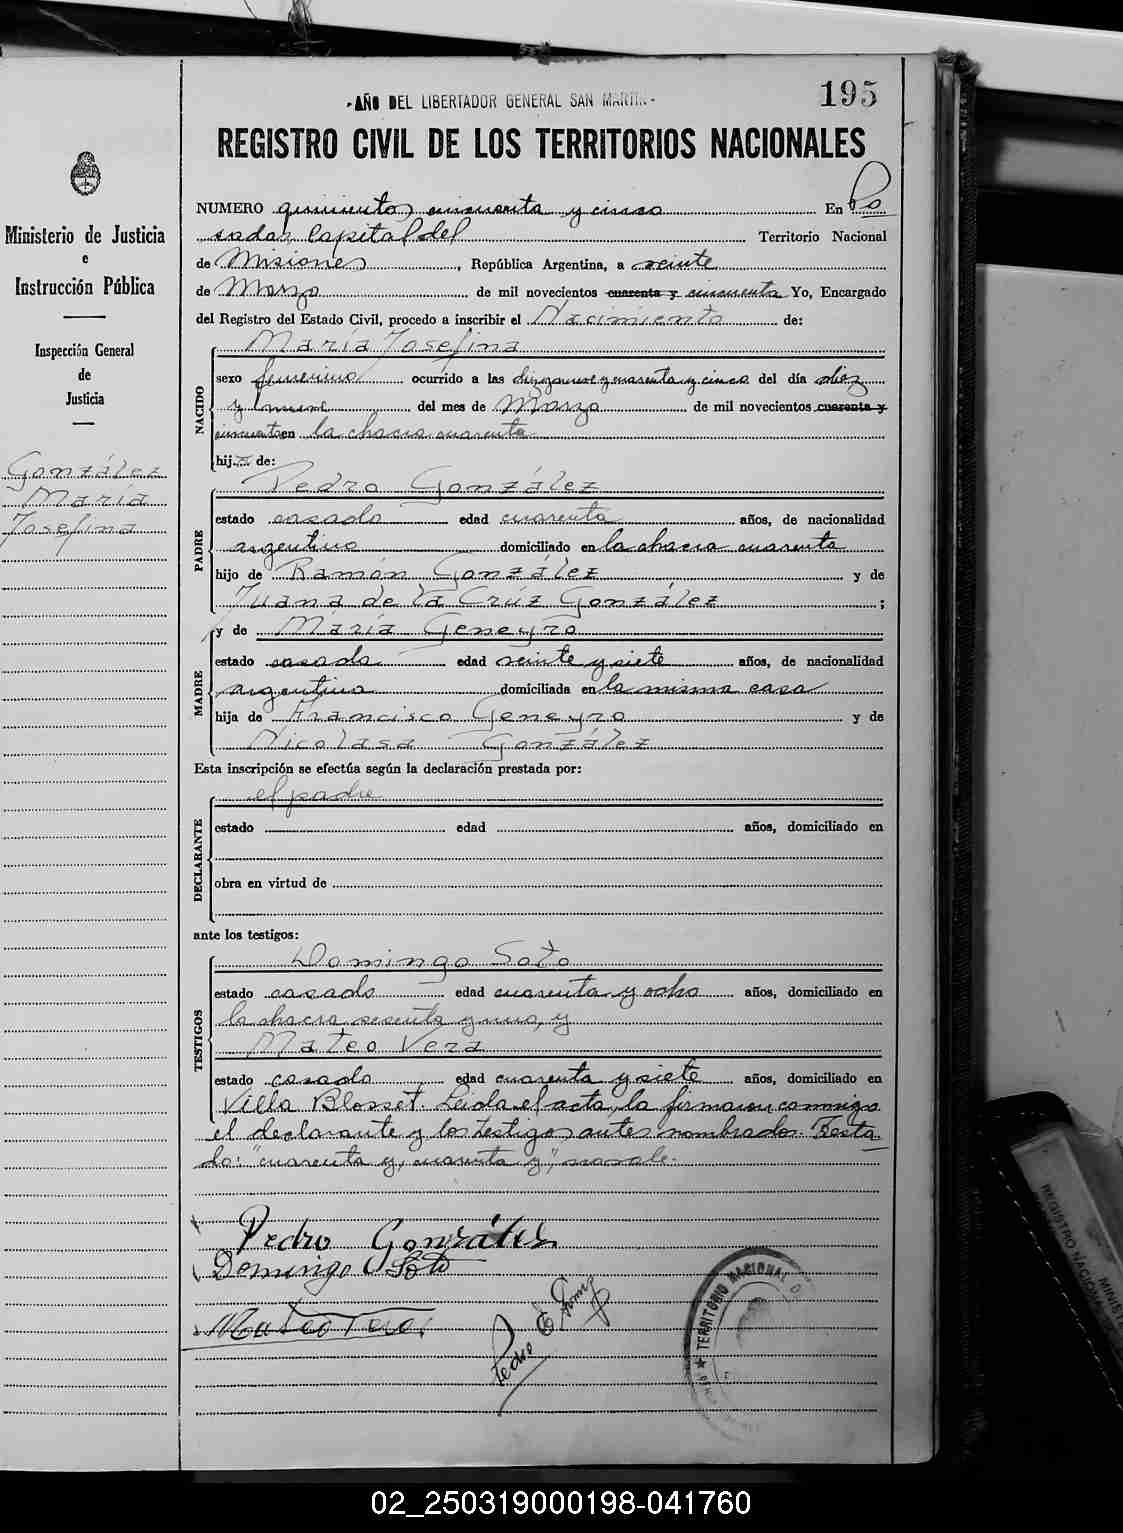 -AÑO DEL LIBERTADOR GENERAL SAN MARTIN-
195
REGISTRO CIVIL DE LOS TERRITORIOS NACIONALES
Ministerio de Justicia
e
Instrucción Pública
Inspección General
de
Justicia
González
María
Josefina
NUMERO quinientos cincuenta y cinco En Po
sadas Capital del Territorio Nacional
de Misiones, República Argentina, a veinte
de Marzo de mil novecientos cuarenta y cincuenta Yo, Encargado
del Registro del Estado Civil, procedo a inscribir el Nacimiento de:
NACIDO
María Josefina
sexo femenino ocurrido a las diez y nueve y cuarenta y cinco del día diez
y nueve del mes de Marzo de mil novecientos cuarenta y
cincuenta en la chacra cuarenta
hija de:
PADRE
Pedro González
estado casado edad cuarenta años, de nacionalidad
argentino domiciliado en la chacra cuarenta
hijo de Ramón González y de
Juana de la Crúz González;
MADRE
y de María Geneyro
estado casada edad veinte y siete años, de nacionalidad
argentina domiciliada en la misma casa
hija de Francisco Geneyro y de
Nicolasa González
Esta inscripción se efectúa según la declaración prestada por:
DECLARANTE
el padre
estado edad años, domiciliado en
obra en virtud de
ante los testigos:
TESTIGOS
Domingo Soto
estado casado edad cuarenta y ocho años, domiciliado en
la chacra sesenta y uno, y
Mateo Vera
estado casado edad cuarenta y siete años, domiciliado en
Villa Blosset. Leida el acta, la firmaron conmigo
el declarante y los testigos antes nombrados. Testa
do: "cuarenta y, cuarenta y", no vale.
Pedro González
Domingo Soto
Mateo Vera
Pedro
TERRITORIO NACIONAL D
REGISTRO NACIONAL
MINIST
02_250319000198-041760